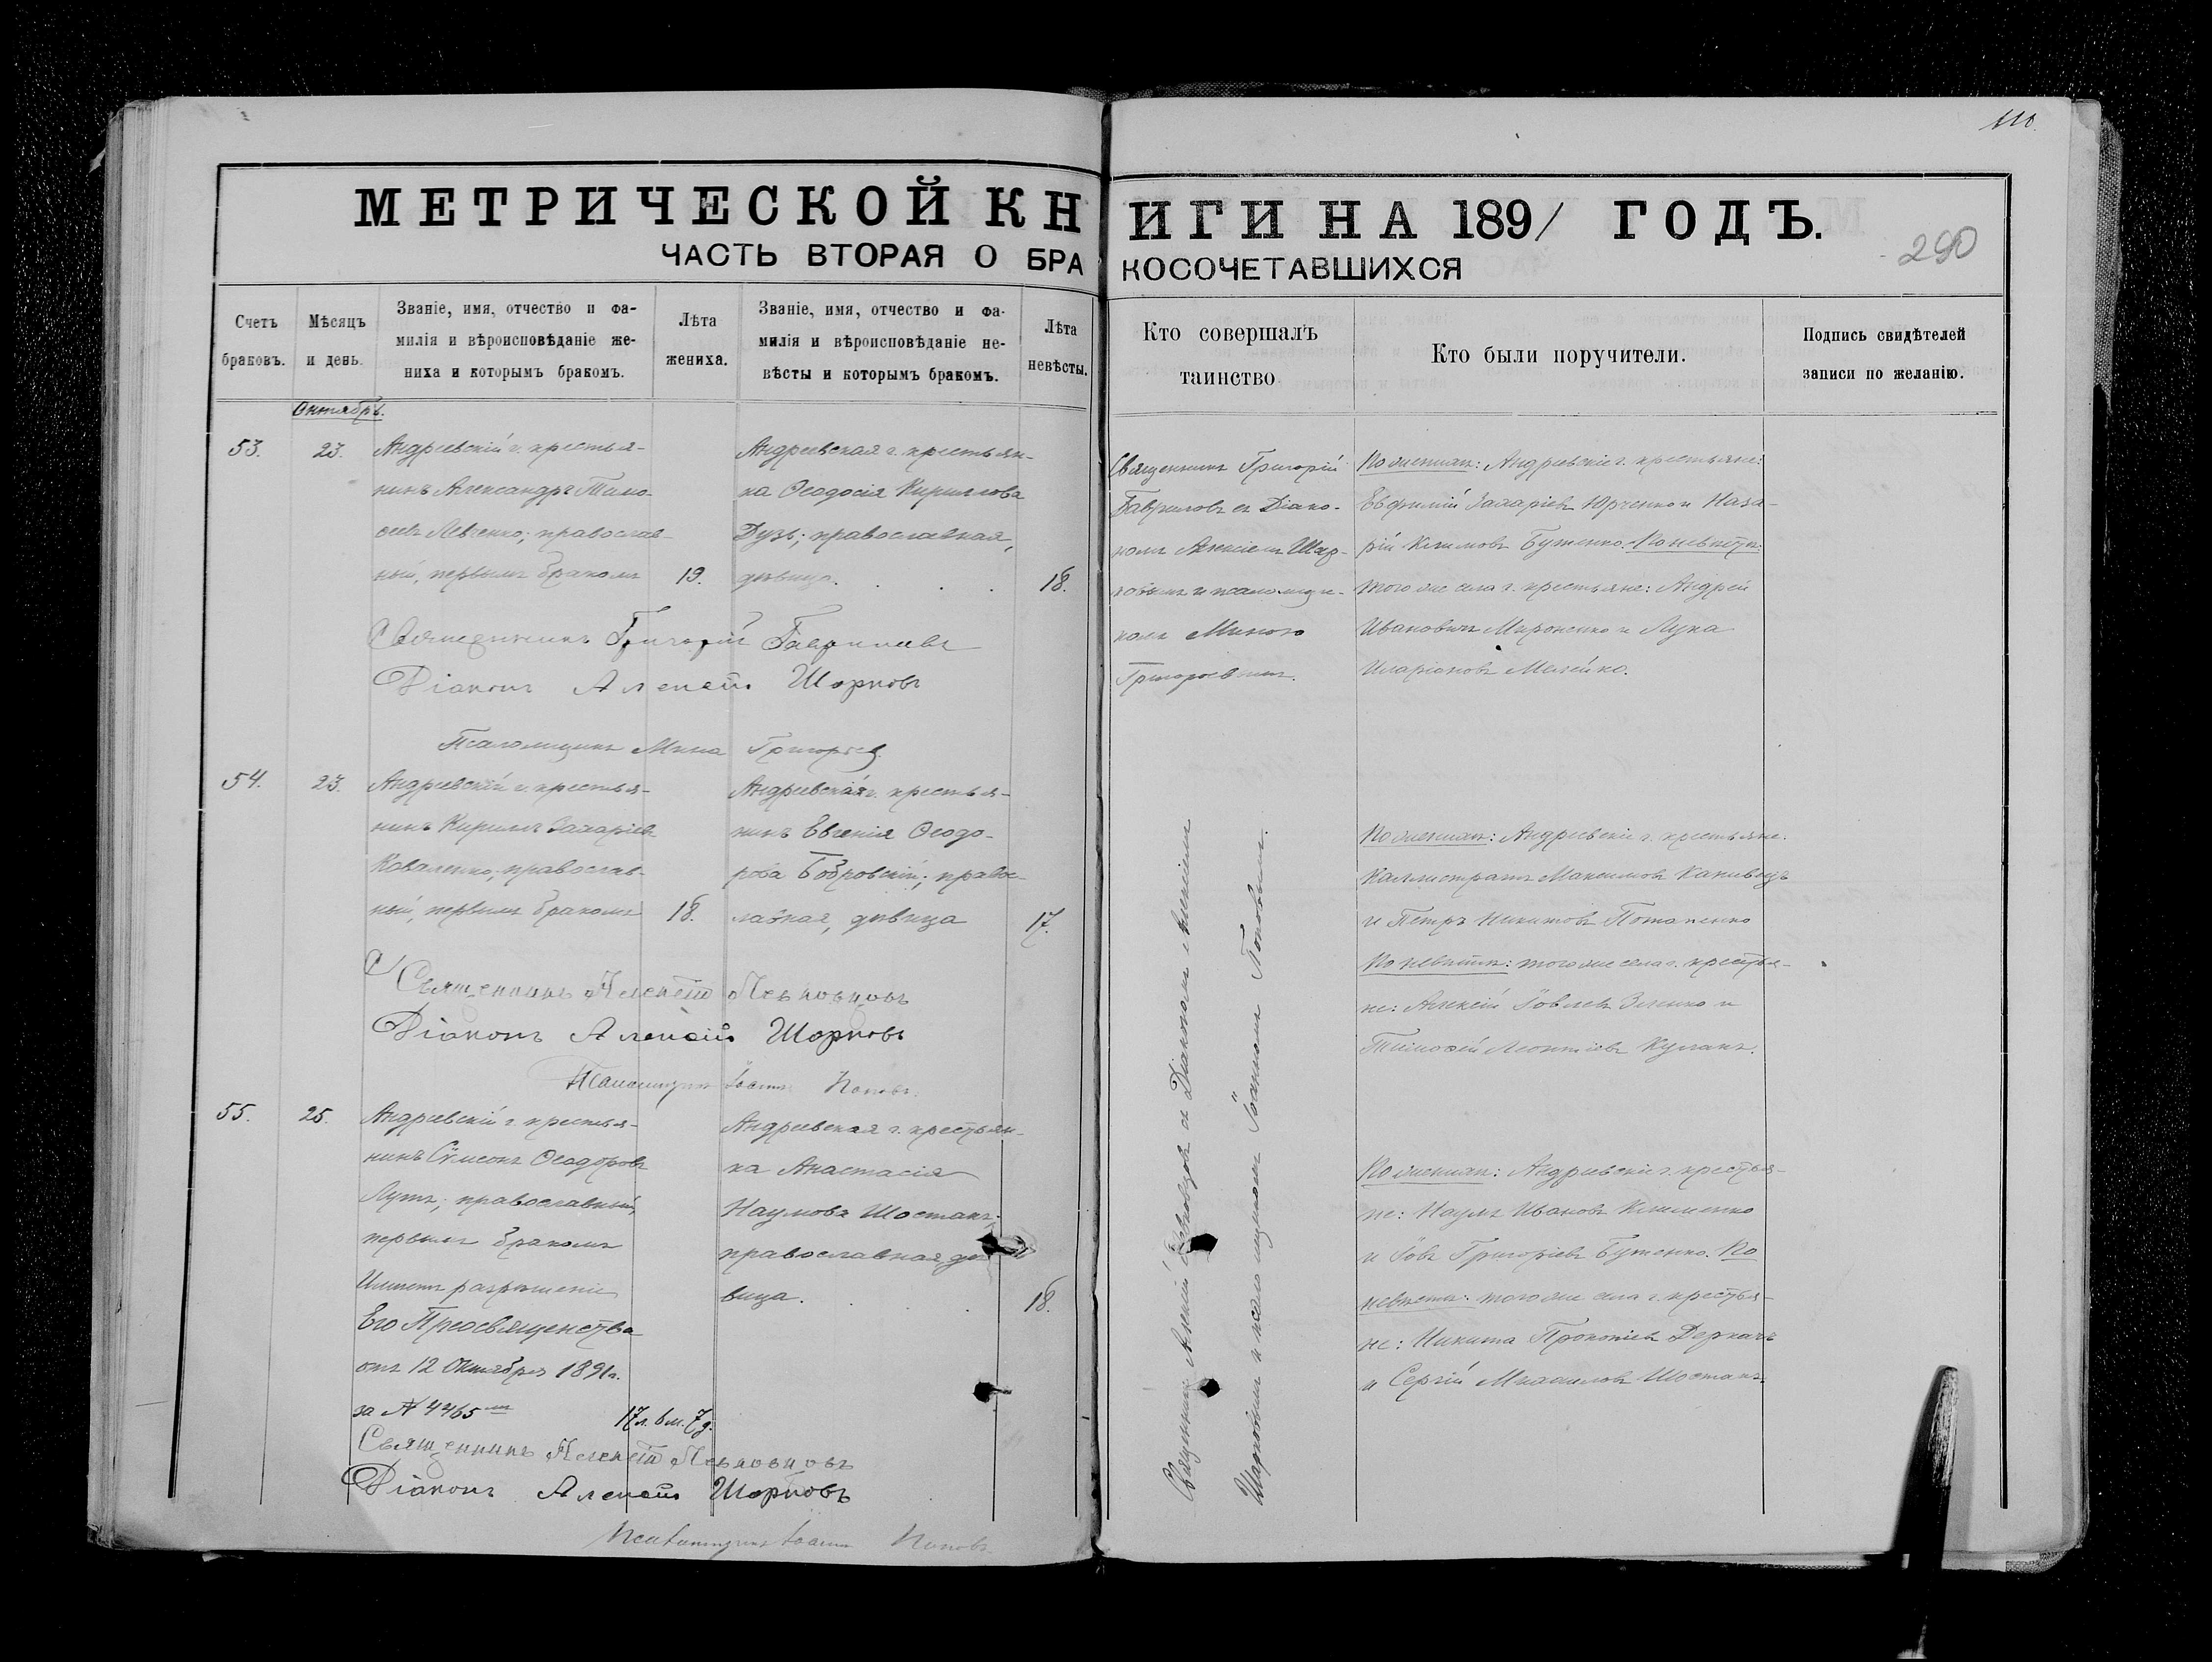 110.
МЕТРИЧЕСКОЙ КНИГИ НА 1891 ГОДЪ.
290
ЧАСТЬ ВТОРАЯ О БРАКОСОЧЕТАВШИХСЯ
Счетъ браковъ.
Мѣсяцъ и день.
Званіе, имя, отчество и фа-
милія и вѣроисповѣданіе же-
ниха и которымъ бракомъ.
Лѣта жениха.
Званіе, имя, отчество и фа-
милія и вѣроисповѣданіе не-
вѣсты и которымъ бракомъ.
Лѣта невѣсты.
Кто совершалъ
таинство
Кто были поручители.
Подпись свидѣтелей
записи по желанію.
Октябрь.
53.
23.
Андреевскій г. крестья-
нинъ Александръ Тимо-
ѳеевъ Левченко; православ-
ный, первымъ бракомъ
19.
Андреевская г. крестьян-
ка Ѳеодосія Кириллова
Дузь; православная,
дѣвица.
18.
Священникъ Григорій
Гавриловъ съ Діако-
номъ Алексіемъ Шар-
ковымъ и псаломщи-
комъ Миною
Григорьевымъ.
По женихѣ: Андреевскіе г. крестьяне:
Евфимій Захаріевъ Юрченко и Наза-
рій Климовъ Бутенко. По невѣстѣ:
того же села г. крестьяне: Андрей
Ивановичъ Мироненко и Лука
Иларіоновъ Матейко.
Священникъ Григорій Гавриловъ
Діаконъ Алексій Шарковъ
Псаломщикъ Мина Григорьев.
54.
23.
Андреевскій г. крестья-
нинъ Кириллъ Захаріевъ
Коваленко; православ-
ный, первымъ бракомъ
18.
Андреевская г. крестья-
нинъ Евгенія Ѳеодо-
рова Бобровскій; правос-
лавная, дѣвица
17.
Священникъ Алексій с Діакономъ Алексіемъ
Шарковымъ и псаломщикомъ Іоанномъ Поповымъ.
По женихѣ: Андреевскіе г. крестьяне:
Каллистратъ Максимовъ Канивецъ
и Петръ Никитовъ Потапенко
По невѣстѣ: того же села г. крестья-
не: Алексій Іовлевъ Зленко и
Тимоѳей Леонтіевъ Кулакъ.
Священникъ Алексій
Діаконъ Алексій Шарковъ
Псаломщикъ Іоаннъ Поповъ.
55.
25.
Андреевскій г. крестья-
нинъ Сѵмеонъ Ѳеодоровъ
Лутъ; православный,
первымъ бракомъ
Имѣетъ разрѣшеніе
Его Преосвященства
отъ 12 Октября 1891г.
за № 4465мъ
17л. 6м. 7д.
Андреевская г. крестьян-
ка Анастасія
Наумова Шостакъ;
православная, дѣ-
вица.
18.
По женихѣ: Андреевскіе г. крестья-
не: Наумъ Ивановъ Клименко
и Іовъ Григоріевъ Бутенко. По
невѣстѣ: того же села г. крестья-
не: Никита Прокопіевъ Деркачъ
и Сергій Михаиловъ Шостакъ.
Священникъ Алексій
Діаконъ Алексій Шарковъ
Псаломщикъ Іоаннъ Поповъ.